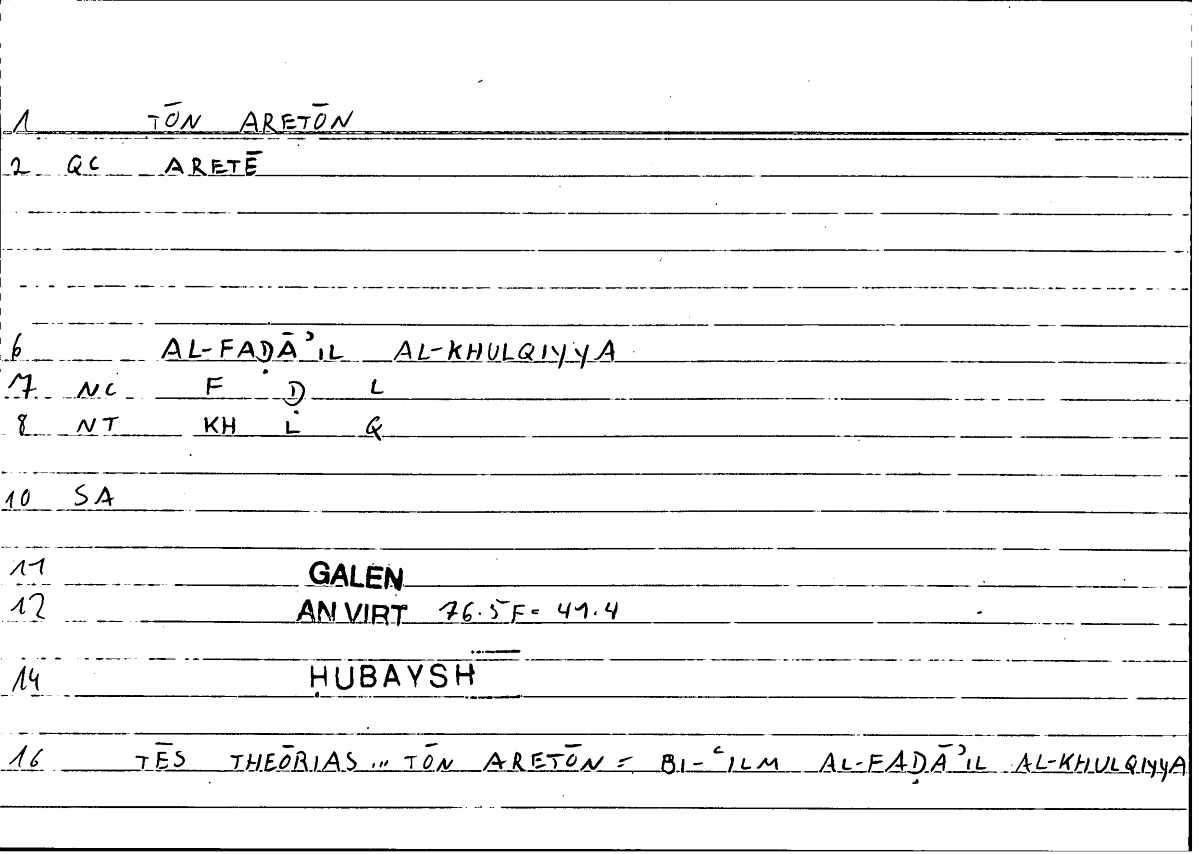 1 TŌN ARETŌN
2 QC ARETĒ
6 AL-FAḌĀʾIL AL-KHULQIYYA
7 NC F Ḍ L
8 NT KH L Q
10 SA
11 GALEN
12 AN VIRT 76.5F = 41.4
14 ḤUBAYSH
16 TĒS THEŌRIAS ... TŌN ARETŌN = BI-ʿILM AL-FAḌĀʾIL AL-KHULQIYYA